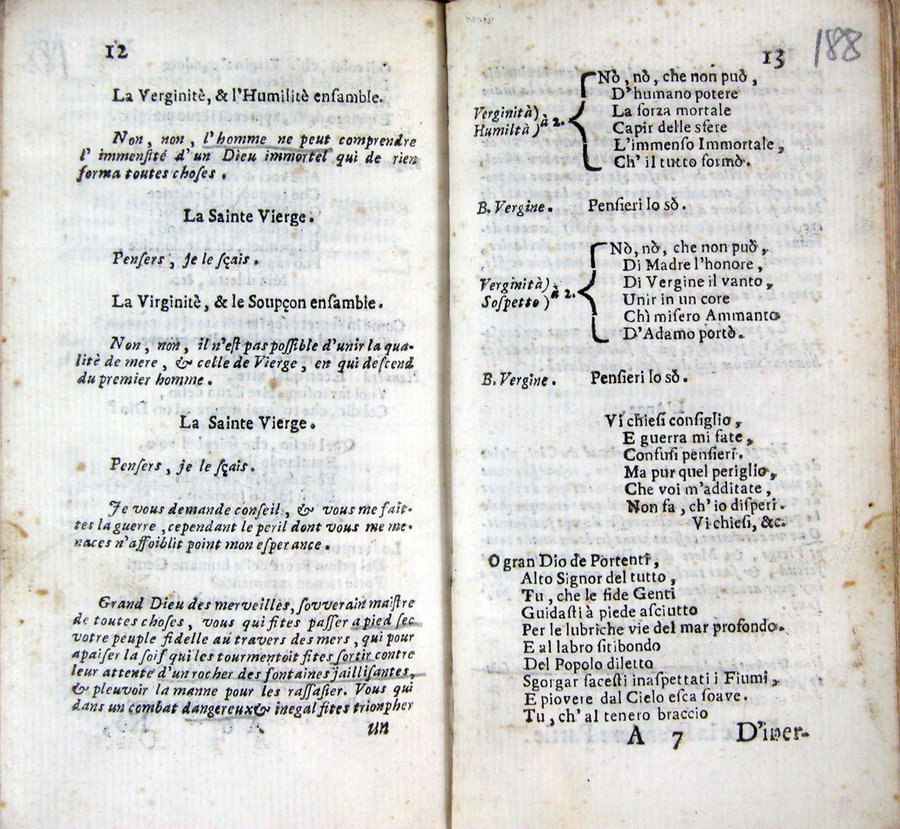 12
La Verginitè, & l'Humilitè ensamble.
Non, non, l'homme ne peut comprendre
l' immensité d'un Dieu immortel qui de rien
forma toutes choses.
La Sainte Vierge.
Pensers, je le sçais.
La Virginitè, & le Soupçon ensamble.
Non, non, il n'est pas possible d'unir la qua-
litè de mere, & celle de Vierge, en qui descend
du premier homme.
La Sainte Vierge.
Pensers, je le sçais.
Je vous demande conseil, & vous me fait-
tes la guerre, cependant le peril dont vous me me-
naces n'affoiblit point mon esperance.
Grand Dieu des merveilles, souverain maistre
de toutes choses, vous qui fites passer a pied sec
votre peuple fidelle au travers des mers, qui pour
apaiser la soif qui les tourmentoit fites sortir contre
leur attente d'un rocher des fontaines jaillisantes,
& pleuvoir la manne pour les rassasier. Vous qui
dans un combat dangereux & inegal fites trionpher
un
13
188
Verginità) à 2.
Humiltà)
Nò, nò, che non può,
D'humano potere
La forza mortale
Capir delle sfere
L'immenso Immortale,
Ch' il tutto formò.
B. Vergine. Pensieri lo sò.
Verginità) à 2.
Sospetto)
Nò, nò, che non può,
Di Madre l'honore,
Di Vergine il vanto,
Unir in un core
Chì misero Ammanto
D'Adamo portò.
B. Vergine. Pensieri lo sò.
Vi chiesi consiglio,
E guerra mi fate,
Confusi pensieri.
Ma pur quel periglio,
Che voi m'additate,
Non fa, ch'io disperi.
Vi chiesi, &c.
O gran Dio de Portenti,
Alto Signor del tutto,
Tu, che le fide Genti
Guidasti à piede asciutto
Per le lubriche vie del mar profondo.
E al labro sitibondo
Del Popolo diletto
Sgorgar facesti inaspettati i Fiumi,
E piovere dal Cielo esca soave.
Tu, ch' al tenero braccio
A 7 D'iner-